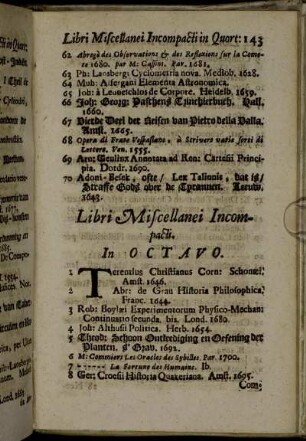 Libri Miscellanei Incompacti in Quort: 143
62 Abregé des Observations & des Reflexions sur la Come-
te 1680. par M: Cassini. Par. 1681.
63 Ph: Lansbergi Cyclometria nova. Mediob. 1628.
64 Moh: Alfergani Elementa Astronomica.
65 Job: à Leonerichies de Corpore. Heidelb. 1659.
66 Joh: Georg: Paschens Trinchierbuch. Hall.
1660.
67 Vierde Deel der Reisen van Pietro della Valla.
Amst. 1665.
68 Opera di Frate Vespasiano, à Scrivere varie sorti di
Lettere. Ven. 1555.
69 Arn: Geulinx Annotata ad Ren: Cartesii Princi-
pia. Dordr. 1690.
70 Adoni-Besek, ofte / Lex Talionis, dat is/
Straffe Godts over de Tyrannen. Leeuw.
1643.
Libri Miscellanei Incom-
pacti.
In OCTAVO.
1 Terentius Christianus Corn: Schonæi,
Amst. 1646.
2 Abr: de Grau Historia Philosophica,
Franc. 1644.
3 Rob: Boylæi Experimentorum Physico-Mechan:
Continuatio secunda, bis. Lond. 1680.
4 Joh: Althusii Politica. Herb. 1654.
5 Theod: Schoon Ontlediging en Oefening der
Planten. s' Grav. 1692.
6 M: Commiers Les Oracles des Sybilles. Par 1700.
7 ------- La Fortune des Humains. Ib.
8 Ger: Croesii Historia Quakeriana. Amst. 1695.
Com: